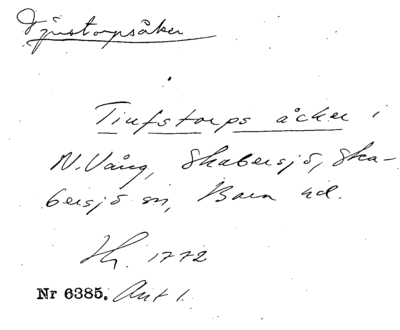 Tjustorpsåker
Tiufstorps åcker i
N. Vång, Skabersjö, Ska-
bersjö sn, Bara hd.
Hg. 1772
Nr 6385. Akt 1.